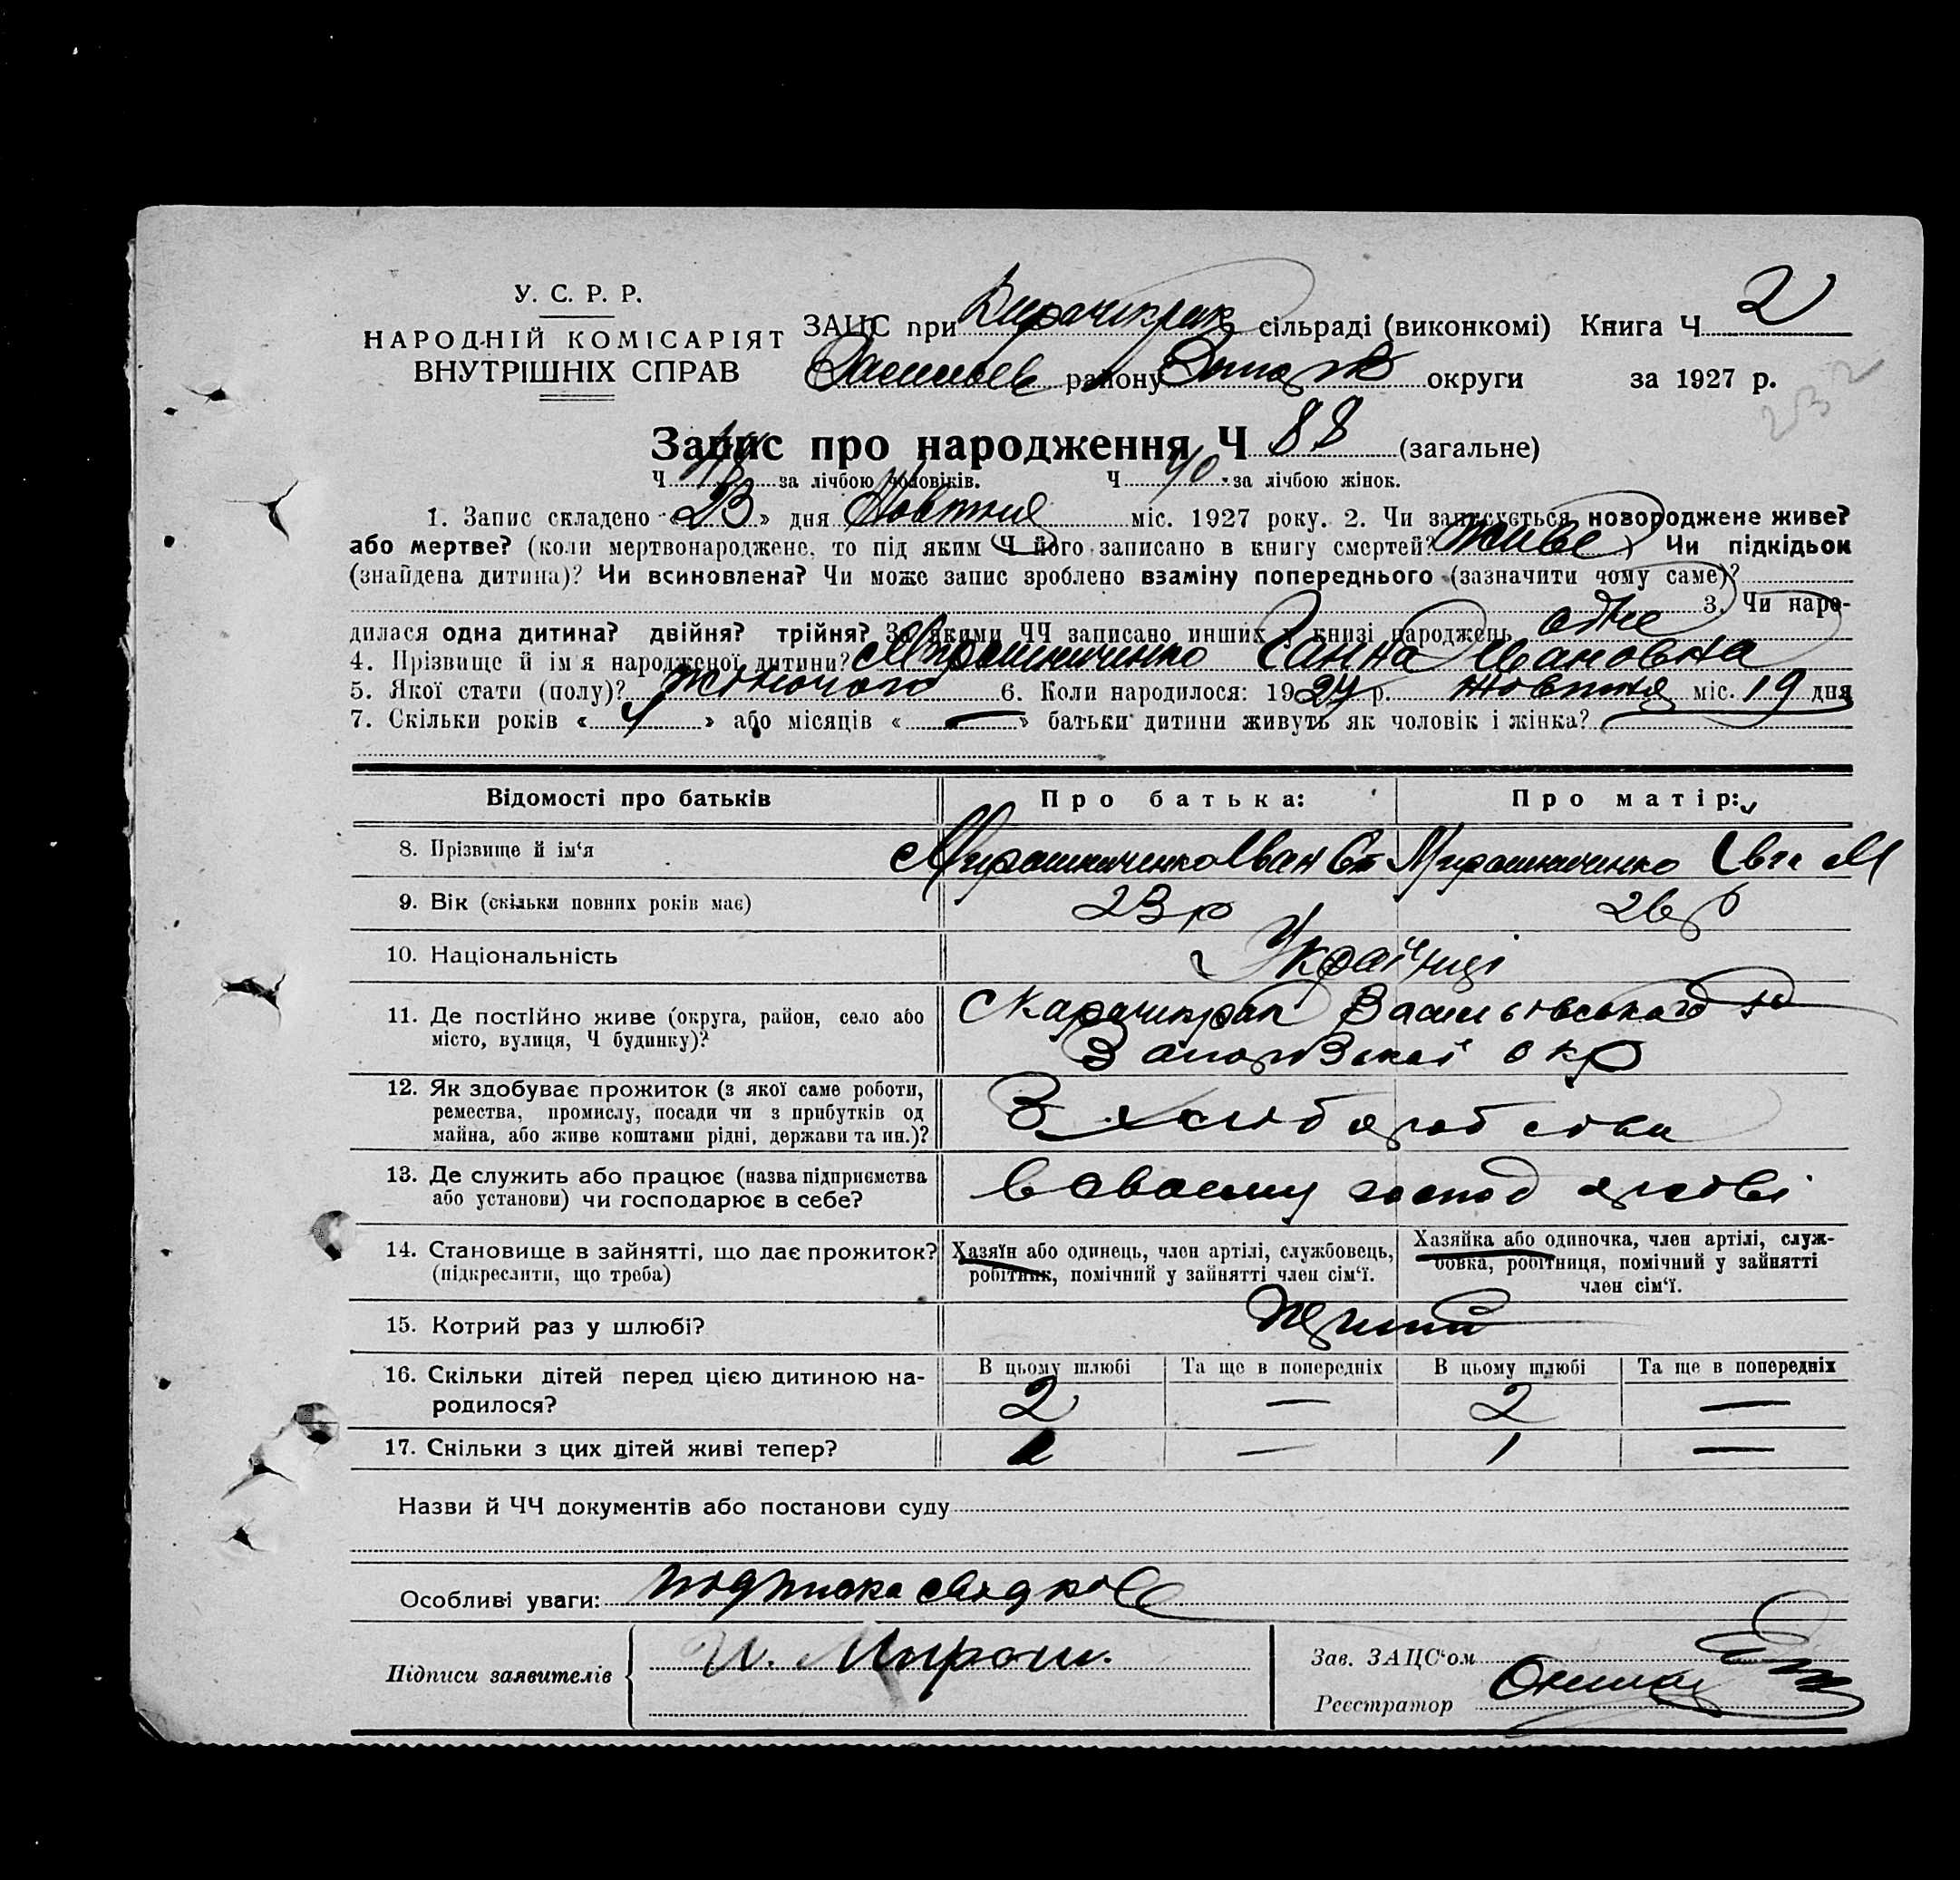 У. С. Р. Р.
НАРОДНІЙ КОМІСАРІЯТ
ВНУТРІШНІХ СПРАВ
ЗАЦС при сільраді (виконкомі) Книга Ч. 2
району округи за 1927 р.
232
Запис про народження Ч 88 (загальне)
Ч за лічбою чоловіків. Ч 40 за лічбою жінок.
1. Запис складено «23» дня Жовтня міс. 1927 року. 2. Чи записується новороджене живе?
або мертве? (коли мертвонароджене, то під яким Ч його записано в книгу смертей? живе) Чи підкідьок
(знайдена дитина)? Чи всиновлена? Чи може запис зроблено взаміну попереднього (зазначити чому саме)?
3. Чи наро-
дилася одна дитина? двійня? трійня? За якими ЧЧ записано инших у книзі народжень одне
4. Прізвище й ім'я народженої дитини? Мирошниченко Ганна Ивановна
5. Якої стати (полу)? жіночого 6. Коли народилося: 1927 р. жовтня міс. 19 дня
7. Скільки років «4» або місяців «—» батьки дитини живуть як чоловік і жінка?
Відомості про батьків Про батька: Про матір:
8. Прізвище й ім'я Мирошниченко Іван Ст Мирошниченко М
9. Вік (скільки повних років має) 23 р 26 р
10. Національність Українці
11. Де постійно живе (округа, район, село або
місто, вулиця, Ч будинку)?
С Карачикрак Васильовського
окр
12. Як здобуває прожиток (з якої саме роботи,
ремества, промислу, посади чи з прибутків од
майна, або живе коштами рідні, держави та ин.)?
З хліборобства
13. Де служить або працює (назва підприємства
або установи) чи господарює в себе?
в своєму господарстві
14. Становище в зайнятті, що дає прожиток?
(підкреслити, що треба)
Хазяїн або одинець, член артілі, службовець,
робітник, помічний у зайнятті член сім'ї.
Хазяйка або одиночка, член артілі, служ-
бовка, робітниця, помічний у зайнятті
член сім'ї.
15. Котрий раз у шлюбі? перший
16. Скільки дітей перед цією дитиною на-
родилося?
В цьому шлюбі Та ще в попередніх В цьому шлюбі Та ще в попередніх
2 — 2 —
17. Скільки з цих дітей живі тепер? 1 — 1 —
Назви й ЧЧ документів або постанови суду
Особливі уваги: подписка свидков
Підписи заявителів И. Мирош.
Зав. ЗАЦС'ом
Реєстратор